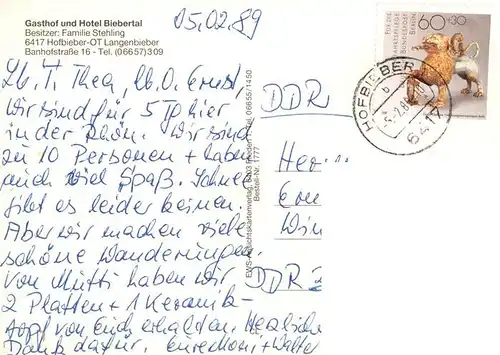 Gasthof und Hotel Biebertal
Besitzer: Familie Stehling
6417 Hofbieber-OT Langenbieber
Banhofstraße 16 - Tel. (06657) 309
05.02.89
Lb. T. Thea, lb. O. Ernst
Wir sind für 5 Tg hier
in der Rhön. Wir sind
zu 10 Personen + haben
auch viel Spaß. Schnee
gibt es leider keinen.
Aber wir machen viele
schöne Wanderungen.
Von Mutti haben wir
2 Platten + 1 Keramik-
topf von Euch erhalten. Herzliche
Dank dafür. Eure + Walte
EWS-Ansichtskartenverlag, Tel. 06655/1450
Bestell-Nr. 1777
DDR
Her
Ern
Win
DDR
FÜR DIE
WOHLFAHRTSPFLEGE
DEUTSCHE
BUNDESPOST
BERLIN
60+30
HOFBIEBER
b
2.89
6417